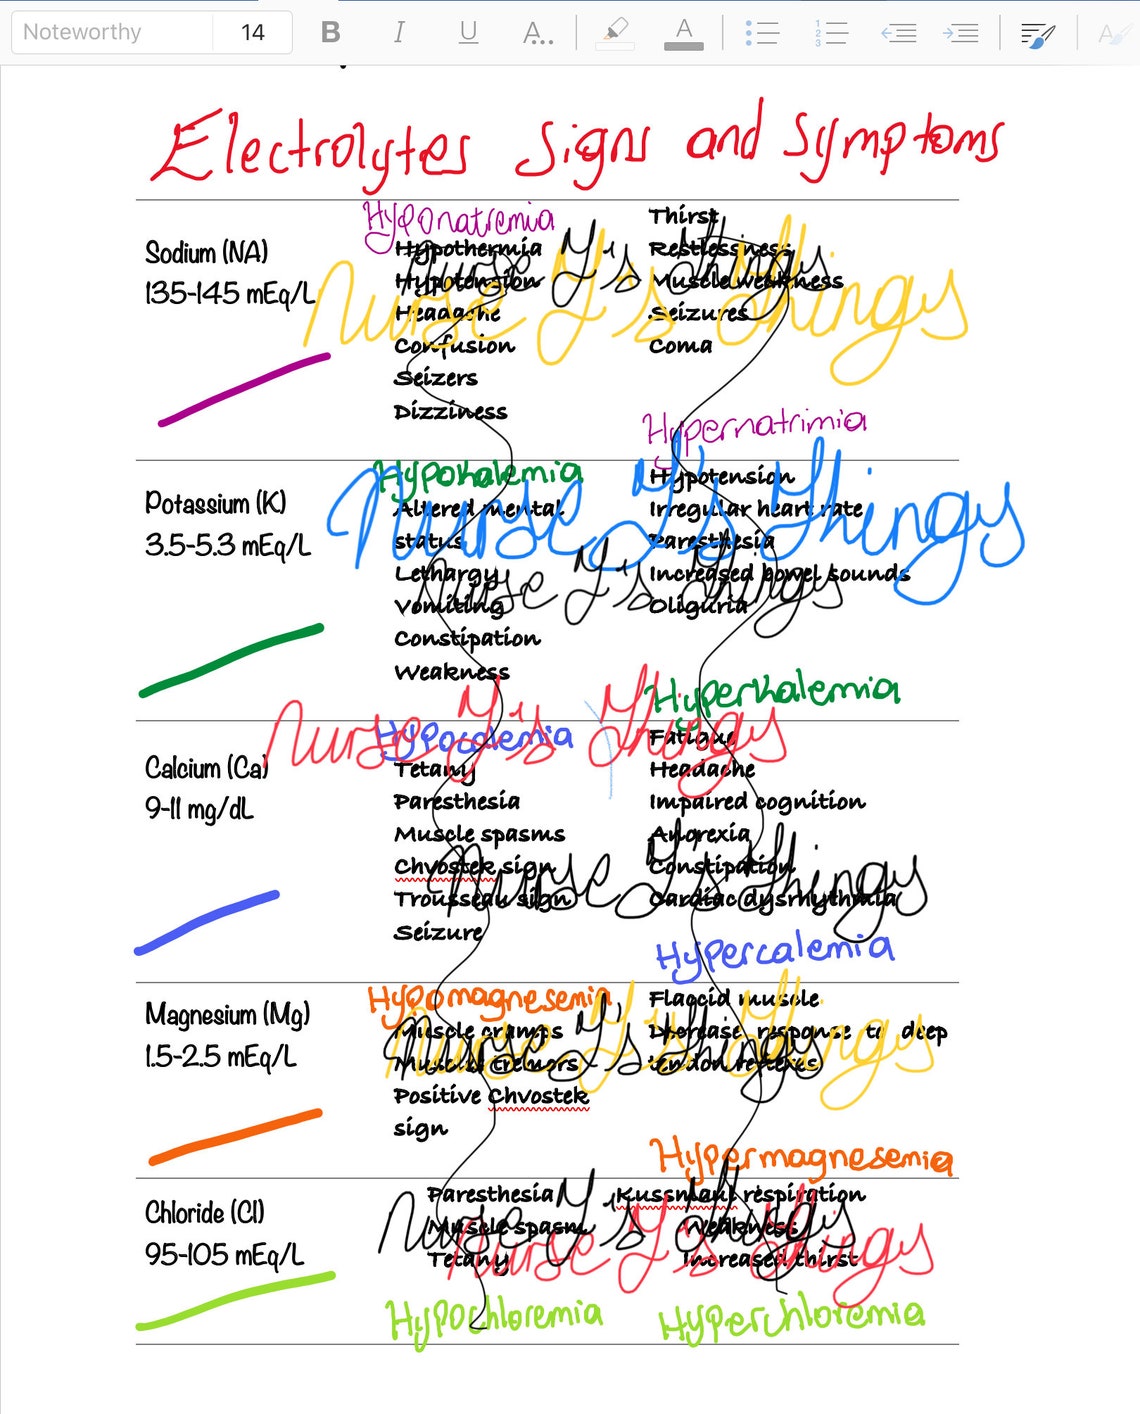 Noteworthy 14 B I U A... A
Electrolytes Signs and Symptoms
Sodium (NA)
135-145 mEq/L
Hyponatremia
Hypothermia
Hypotension
Headache
Confusion
Seizers
Dizziness
Thirst
Restlessness
Muscle weakness
Seizures
Coma
Hypernatrimia
Nurse Y's things
Nurse Y's things
Potassium (K)
3.5-5.3 mEq/L
Hypokalemia
Altered mental
status
Lethargy
Vomiting
Constipation
Weakness
Hypotension
Irregular heart rate
Paresthesia
Increased bowel sounds
Oliguria
Hyperkalemia
Nurse Y's things
Nurse Y's things
Nurse Y's things
Calcium (Ca)
9-11 mg/dL
Hypocalemia
Tetany
Paresthesia
Muscle spasms
Chvostek sign
Trousseau sign
Seizure
Fatigue
Headache
Impaired cognition
Anorexia
Constipation
Cardiac dysrhythmia
Hypercalemia
Nurse Y's things
Magnesium (Mg)
1.5-2.5 mEq/L
Hypomagnesemia
Muscle cramps
Muscle tremors
Positive Chvostek
sign
Flaccid muscle
Decrease response to deep
tendon reflexes
Hypermagnesemia
Nurse Y's things
Nurse Y's things
Chloride (Cl)
95-105 mEq/L
Paresthesia
Muscle spasm
Tetany
Hypochloremia
Kussmaul respiration
Weakness
Increased thirst
Hyperchloremia
Nurse Y's things
Nurse Y's things